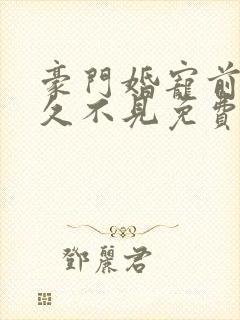 豪門婚寵前
久不見免費
鄧麗君